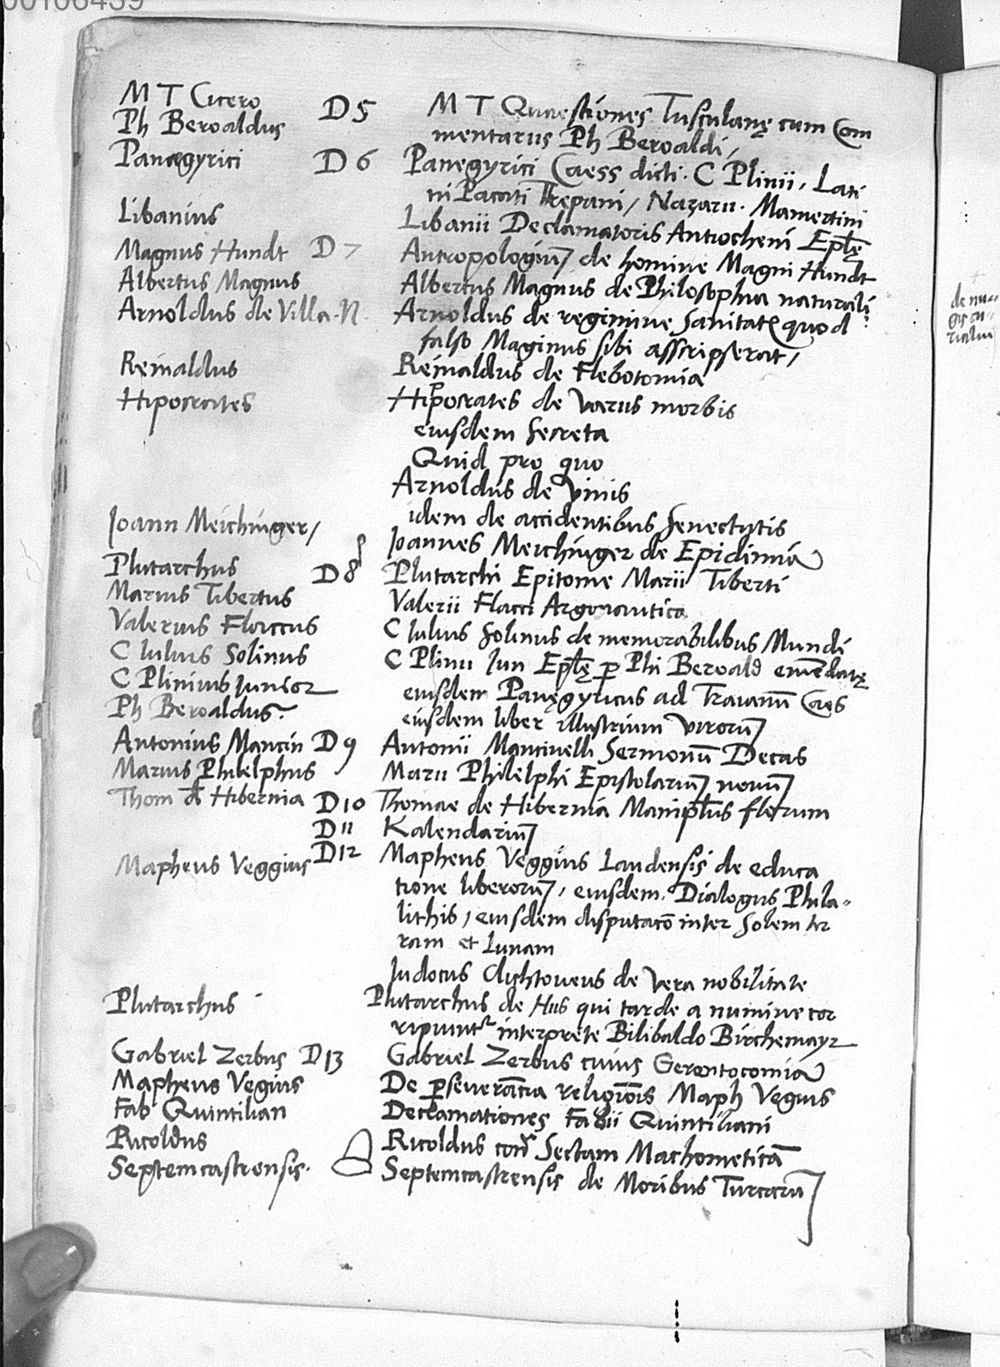 00106439
M T Cicero D 5 M T Quaestiones Tusculanę cum Com
Ph Beroaldus mentarus Ph Beroaldi,
Panęgyrici D 6 Panegyrici Caess dicti. C Plinii, Lati
ni Pacati Trepani, Nazarii. Mamertini
Libanius Libanii Declamatoris Antiocheni Eplę
Magnus Hundt D 7 Antropologiuȝ de homine Magni Hundt
Albertus Magnus Albertus Magnus de Philosophia naturali
Arnoldus de Villa N. Arnoldus de regimine sanitatꝭ quod
falso Maginus sibi asscripserat,
Reinaldus Reinaldus de Flebotomia
Hipocrates Hipocrates de varus morbis
eiusdem secreta
Quid pro quo
Arnoldus de Vinis
idem de accidentibus senectutis
Joann Meichinger, Joannes Meichinger de Epidimia
Plutarchus D 8 Plutarchi Epitome Marii Tiberti
Marius Tibertus Valerii Flacci Argonautica
Valerius Flaccus C Julius Solinus de memorabilibus Mundi
C Julius Solinus C Plinu Jun Eplę ꝑ Phi Beroald emēdatę
C Plinius Junior eiusdem Panęgyricus ad Traianū Caes
Ph Beroaldus. eiusdem liber illustrium viroruȝ
Antonius Mancin D 9 Antonii Mancinelli Sermonū Decas
Marius Philelphus Marii Philelphi Epistolariuȝ nouuȝ
Thom de Hibernia D 10 Thomae de Hibernia Maniplus florum
D 11 Kalendariuȝ
D 12 Mapheus Veggius Laudensis de educa
Mapheus Veggius tione liberoruȝ, eiusdem. Dialogus Phila-
lithis, eiusdem disputacō inter Solem ter
ram et Lunam
Judocus Clichtoueus de vera nobilitate
Plutarchus Plutarchus de His qui tarde a numine cor
ripiunt interprete Bilibaldo Birchemayr
Gabriel Zerbus D 13 Gabriel Zerbus cuius Gerontocomia
Mapheus Vegius De ꝑseuerācia religiōis Maph Vegius
Fab Quintilian Declamationes Fabii Quintiliani
Ricoldus Ricoldus con Sectam Machometicā
Septemcastrensis. Septemcastrensis de Moribus Turcaruȝ